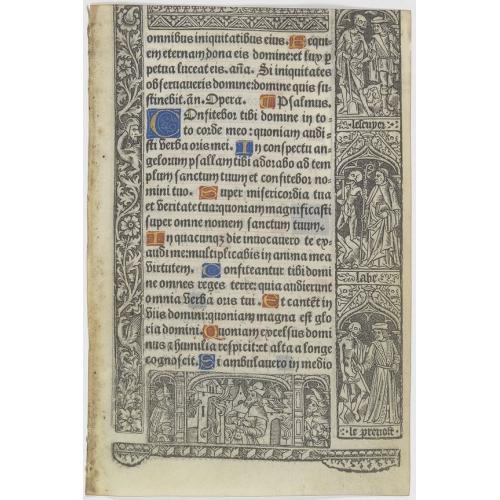 omnibus iniquitatibus eius. Requi
em eternam dona eis domine: et lux p
petua luceat eis. añ. Si iniquitates
obseruaueris domine: domine quis su
stinebit. an. Opera. Psalmus.
Confitebor tibi domine in to
to corde meo: quoniam audi
sti verba oris mei. In conspectu an
gelorum psallam tibi adorabo ad tem
plum sanctum tuum et confitebor no
mini tuo. Super misericordia tua
et veritate tua: quoniam magnificasti
super omne nomen sanctum tuum.
In quacunqz die inuocauero te ex
audi me: multiplicabis in anima mea
virtutem. Confiteantur tibi domi
ne omnes reges terre: quia audierunt
omnia verba oris tui. Et cantēt in
viis domini: quoniam magna est glo
ria domini. Quoniam excelsus domi
nus & humilia respicit: et alta a longe
cognoscit. Si ambulauero in medio
lescuyer
labe
le preuost